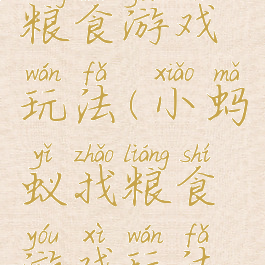 粮食游戏
wán fǎ xiǎo mǎ
玩法(小蚂
yǐ zhǎo liáng shí
蚁找粮食
yóu xì wán fǎ
游戏玩法